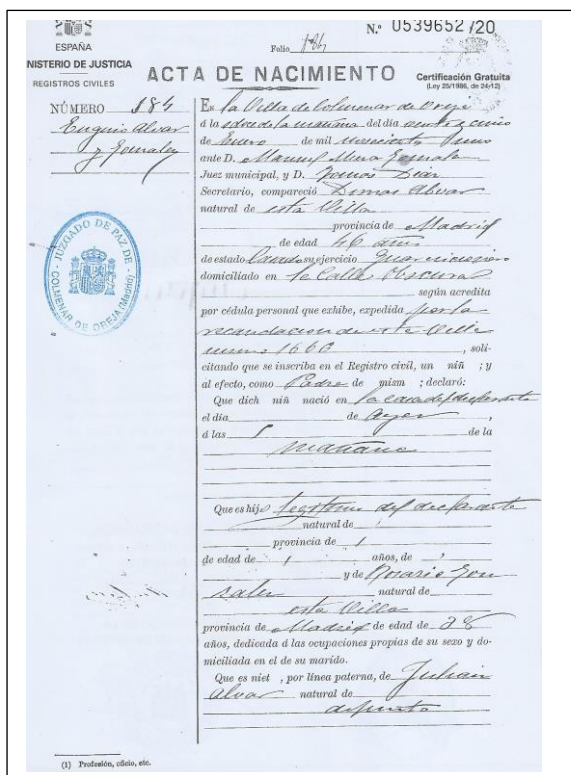 N.º 0539652 /20
ESPAÑA
Folio 184
MINISTERIO DE JUSTICIA
REGISTROS CIVILES
ACTA DE NACIMIENTO
Certificación Gratuita
(Ley 25/1986, de 24-12)
NÚMERO 184
Eugenio Alvar
y Gonzalez
JUZGADO DE PAZ DE
COLMENAR DE OREJA (Madrid)
En la Villa de Colmenar de Oreja
á la doce de la mañana del día veinte y cinco
de Enero de mil novecientos uno
ante D. Manuel Mera Gonzalez
Juez municipal, y D. Tomás Díaz
Secretario, compareció Dimas Alvar
natural de esta Villa
provincia de Madrid
de edad 46 años
de estado Casado su ejercicio Guarnicionero
domiciliado en la Calle Obscura
según acredita
por cédula personal que exhibe, expedida por la
recaudacion de esta Villa
numero 1660, soli-
citando que se inscriba en el Registro civil, un niñ ; y
al efecto, como Padre de mism ; declaró:
Que dich niñ nació en la casa del declarante
el día de Ayer,
á las de la
mañana
Que es hijo legitimo del declarante
natural de
provincia de
de edad de años, de
y de Rosario Gon
zalez natural de
esta Villa
provincia de Madrid de edad de 38
años, dedicada á las ocupaciones propias de su sexo y do-
miciliada en el de su marido.
Que es niet , por línea paterna, de Julian
Alvar natural de
difunto
(1) Profesión, oficio, etc.